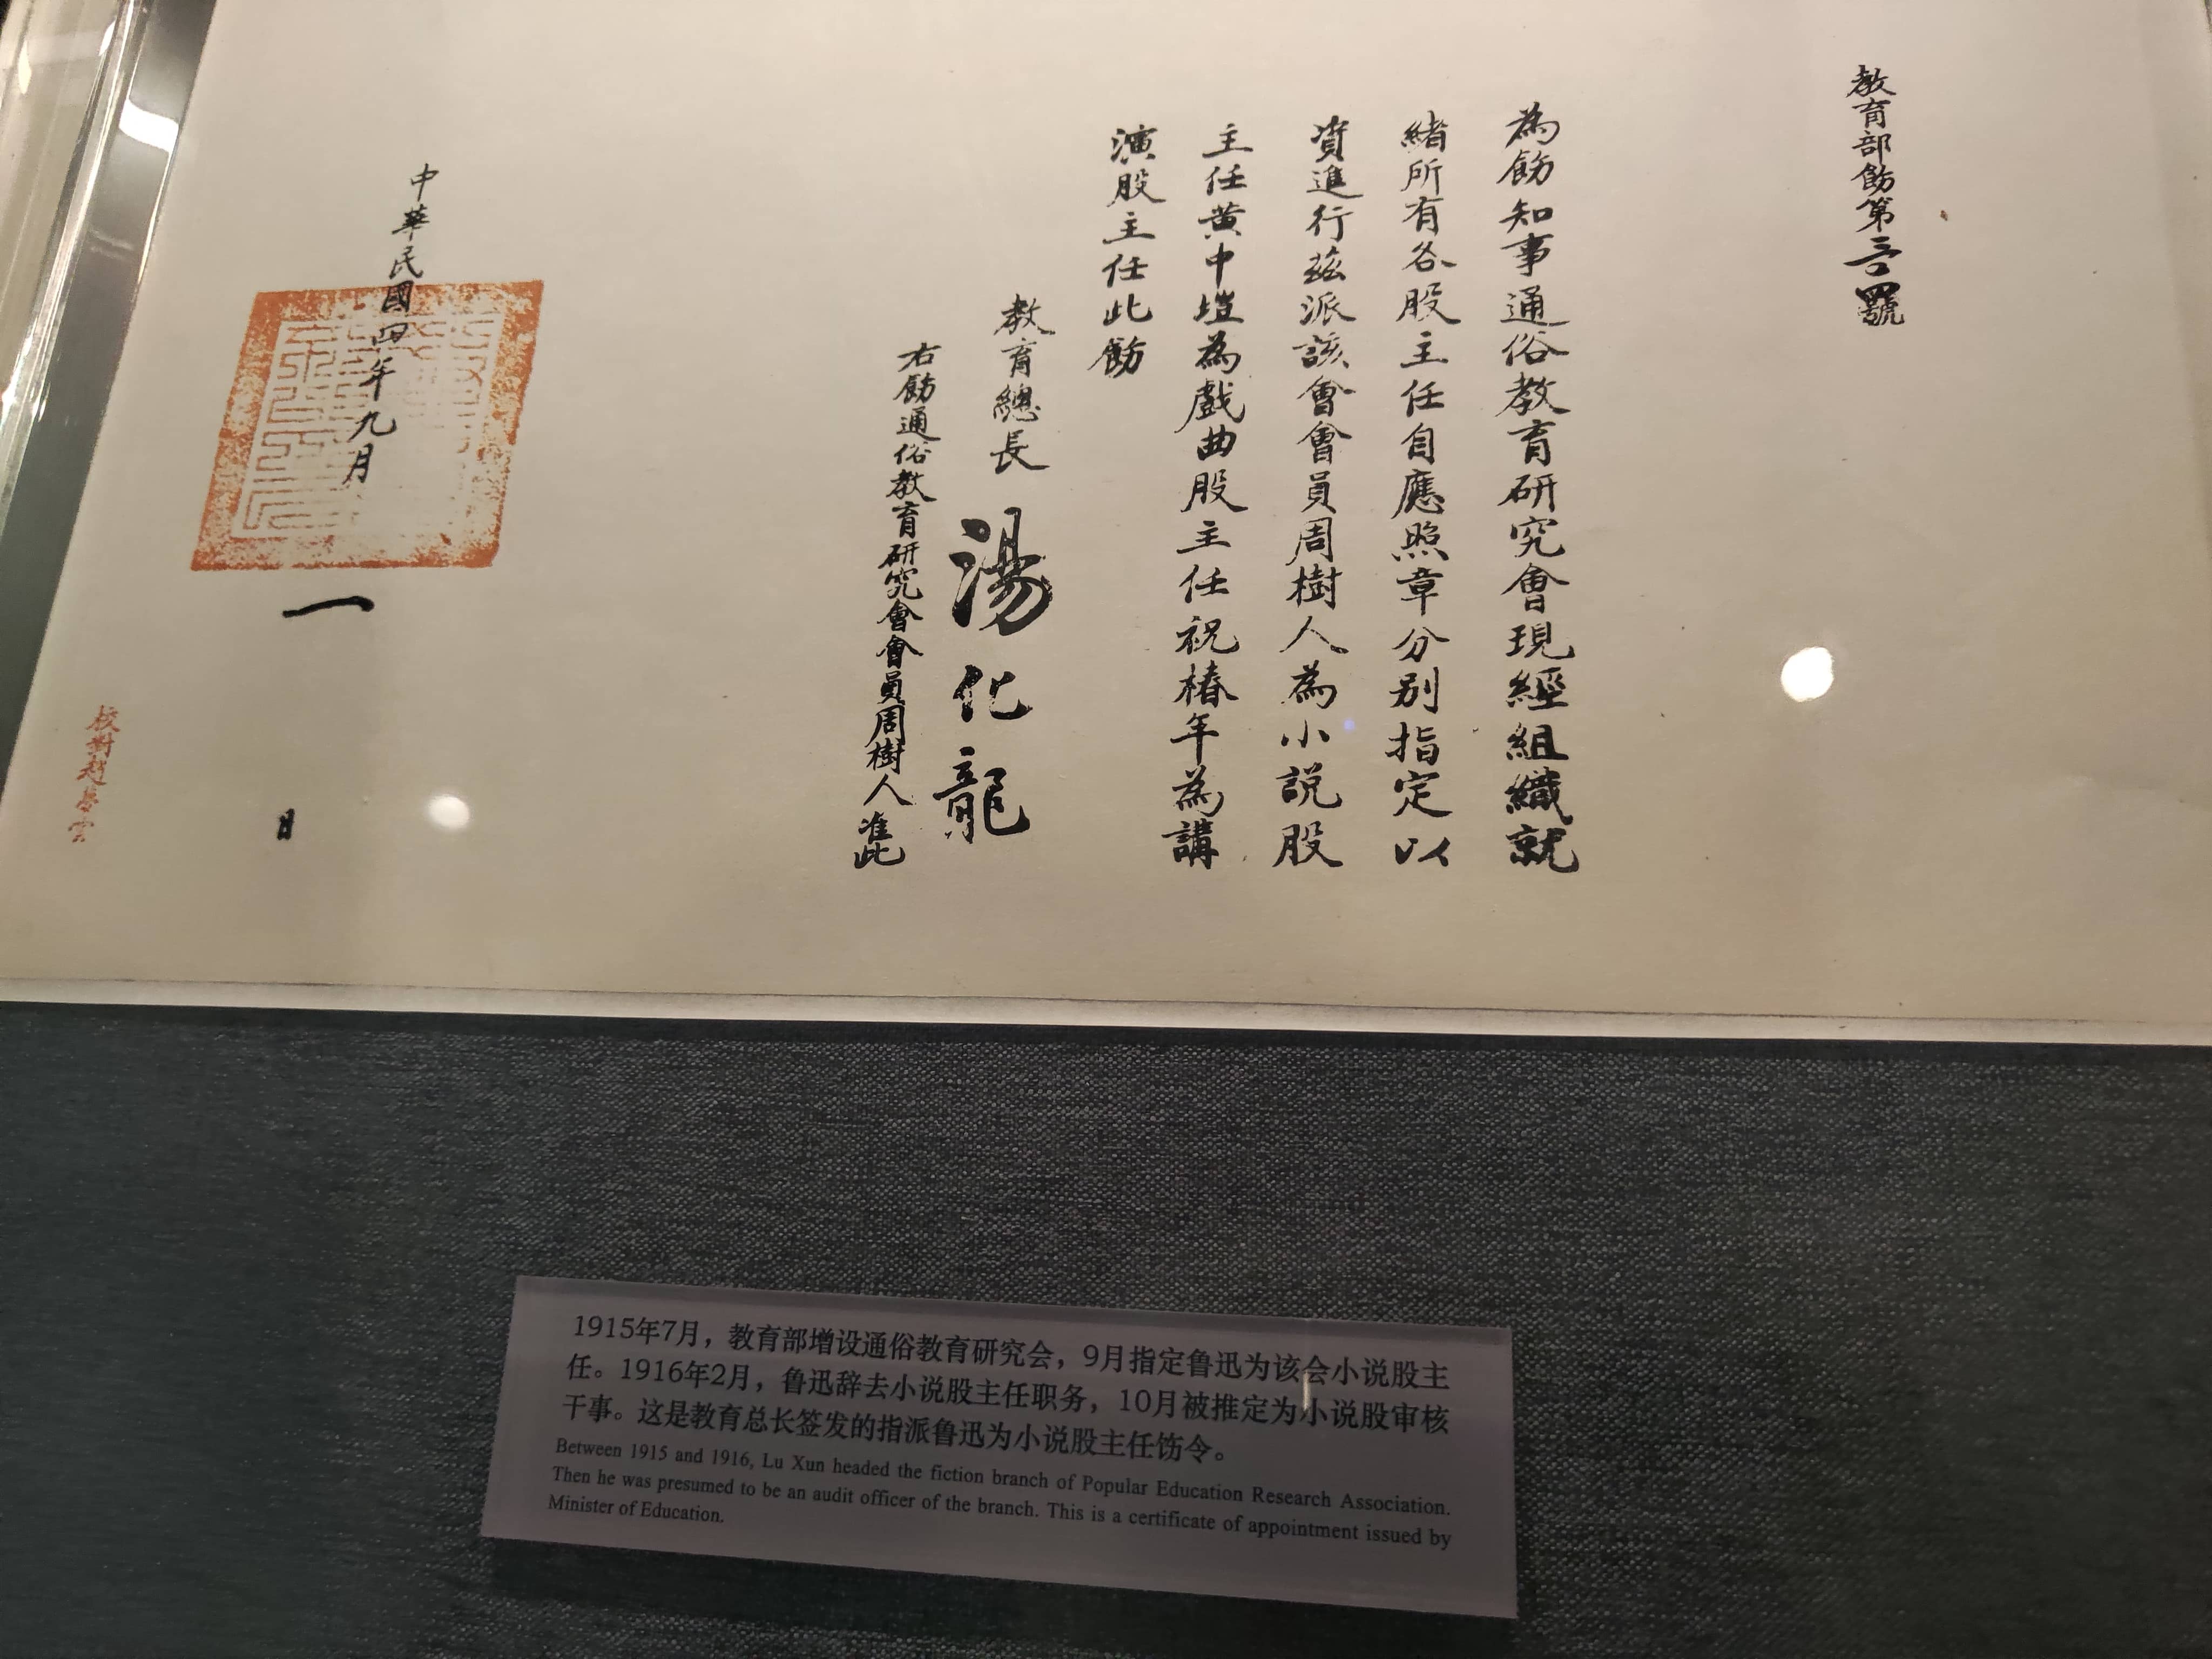 教育部飭第三百四號
為飭知事通俗教育研究會現經組織就
緒所有各股主任自應照章分別指定以
資進行茲派該會會員周樹人為小說股
主任黃中塏為戲曲股主任祝椿年為講
演股主任此飭
教育總長 湯化龍
右飭通俗教育研究會會員周樹人准此
中華民國四年九月 一 日
校對趙
1915年7月，教育部增设通俗教育研究会，9月指定鲁迅为该会小说股主
任。1916年2月，鲁迅辞去小说股主任职务，10月被推定为小说股审核
干事。这是教育总长签发的指派鲁迅为小说股主任饬令。
Between 1915 and 1916, Lu Xun headed the fiction branch of Popular Education Research Association.
Then he was presumed to be an audit officer of the branch. This is a certificate of appointment issued by
Minister of Education.